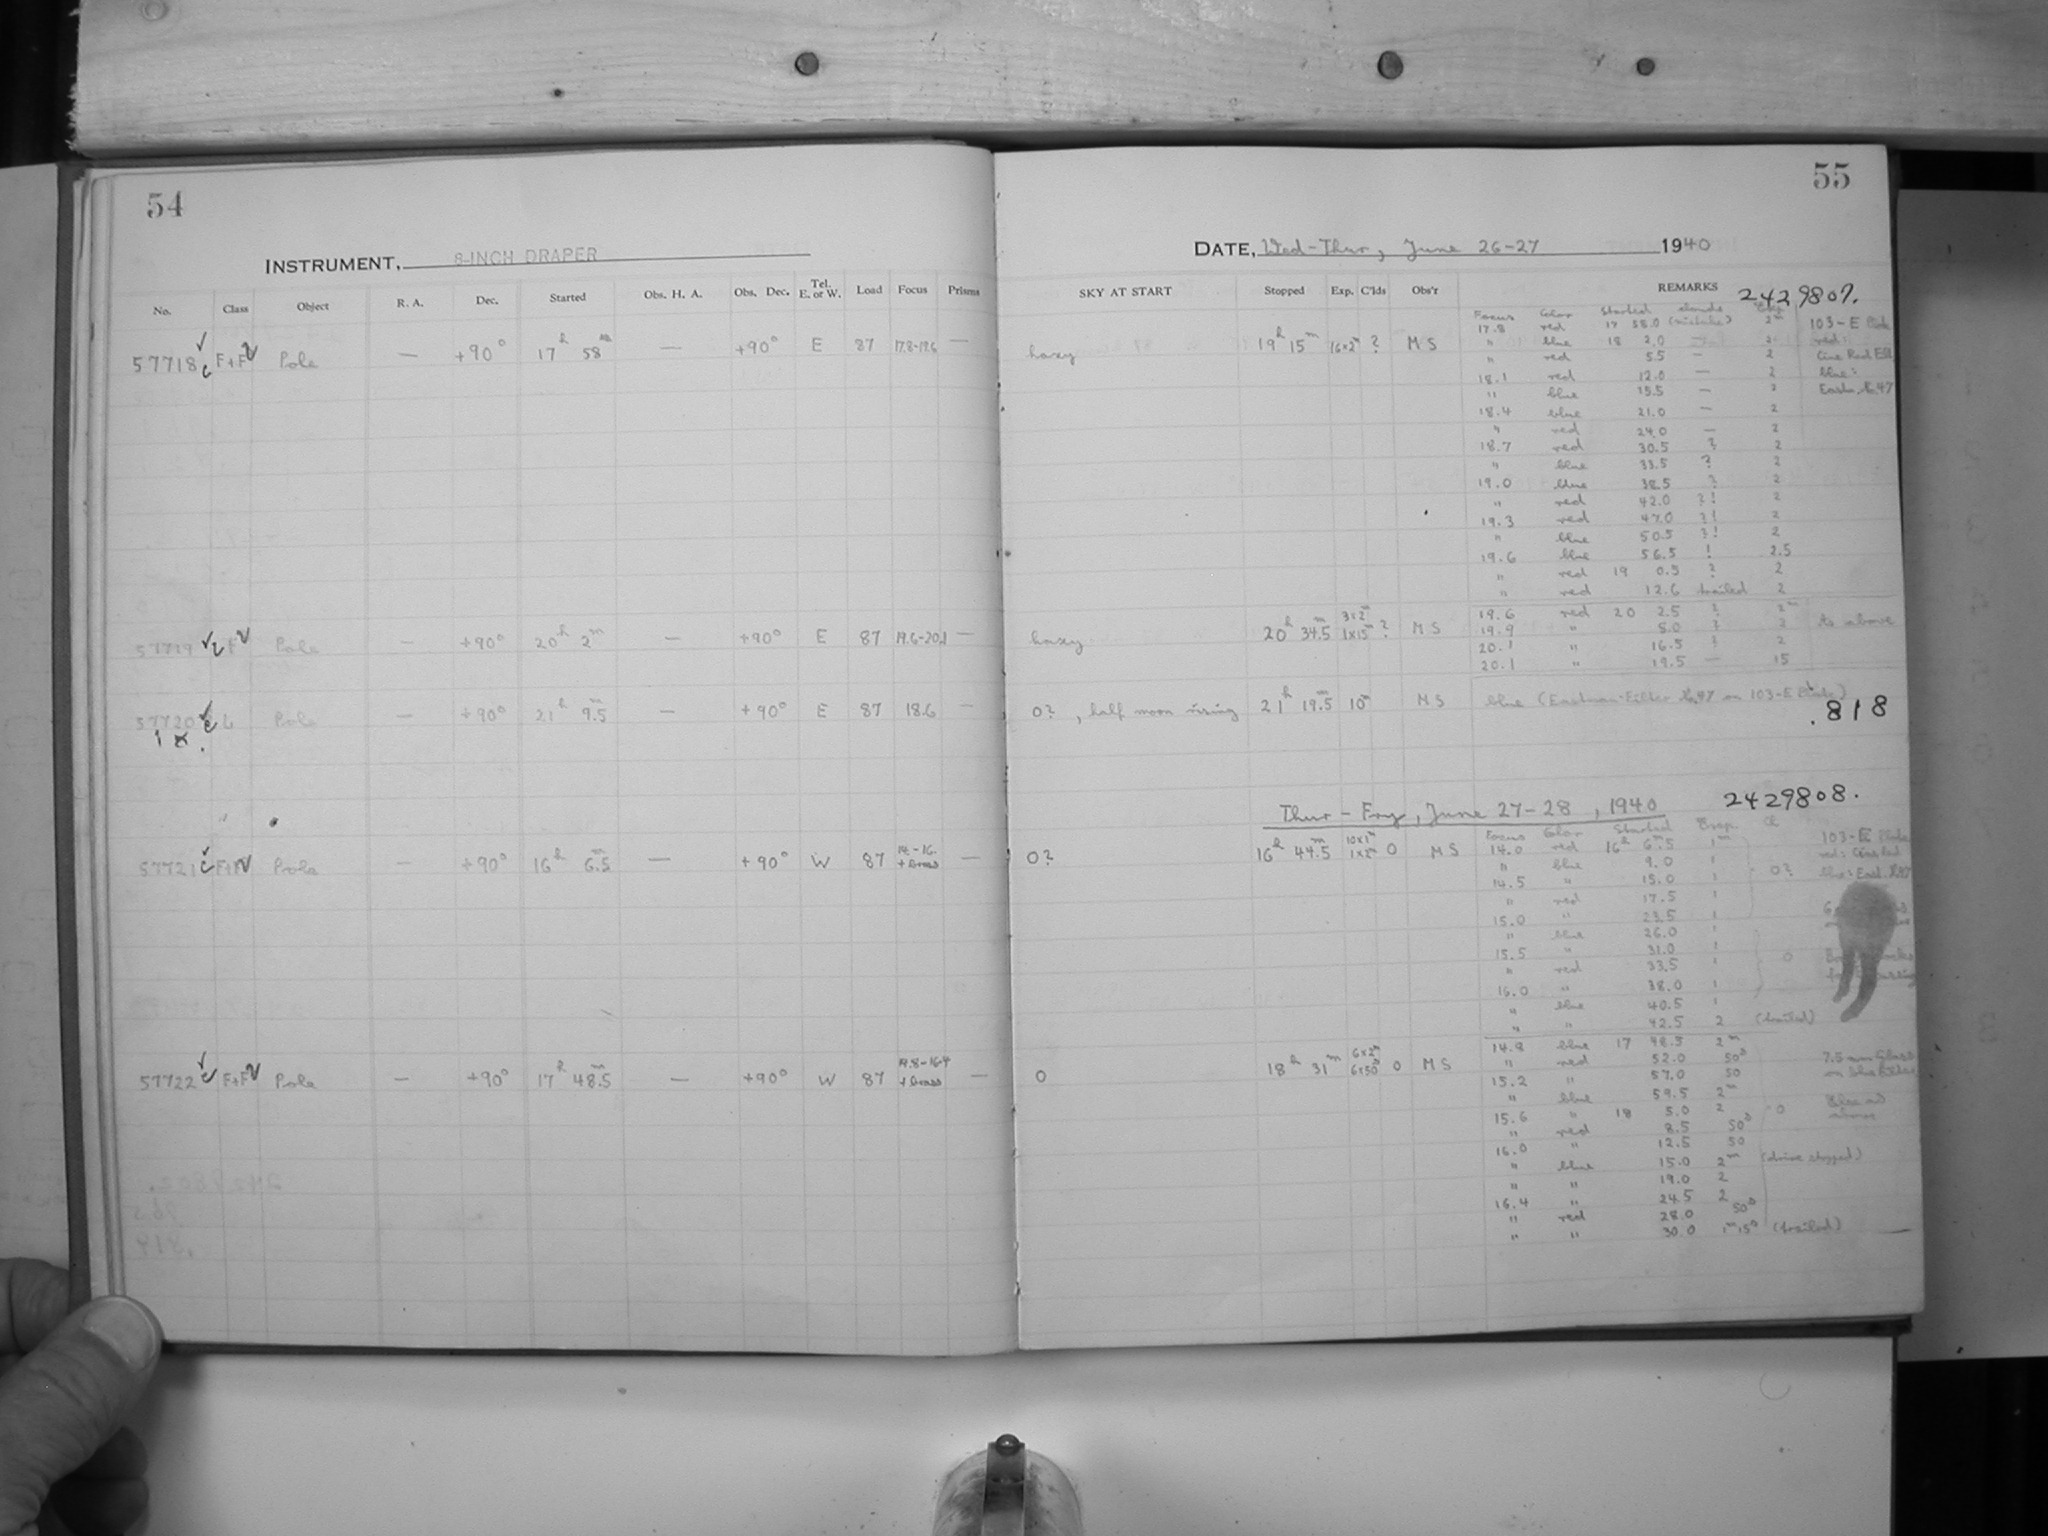 54
INSTRUMENT, 8-INCH DRAPER
No. Class Object R. A. Dec. Started Obs. H. A. Obs. Dec. Tel. E. or W. Load Focus Prisms
57718 F+F Pole — +90° 17h 58m — +90° E 87 17.8-19.6 —
57719 F Pole — +90° 20h 2m — +90° E 87 19.6-20.1 —
57720 L Pole — +90° 21h 9.5m — +90° E 87 18.6 —
57721 F+F Pole — +90° 16h 6.5m — +90° W 87 14.-16. + Brass —
57722 F+F Pole — +90° 17h 48.5m — +90° W 87 + Brass —
55
DATE, Wed-Thur, June 26-27 1940
SKY AT START Stopped Exp. C'lds Obs'r REMARKS
2429807.
hazy 19h 15m 16x2m ? MS
Focus Color Started clouds Exp.
17.8 red 17 58.0 (mistake) 2m 103-E Plate
" blue 18 2.0 — 2 red:
" red 5.5 — 2 Cine Red
18.1 red 12.0 — 2 blue:
" blue 15.5 — 2 East. 47
18.4 blue 21.0 — 2
" red 24.0 — 2
18.7 red 30.5 ? 2
" blue 33.5 ? 2
19.0 blue 38.5 ? 2
" red 42.0 ?! 2
19.3 red 47.0 ?! 2
" blue 50.5 ?! 2
19.6 blue 56.5 ! 2.5
" red 19 0.5 ? 2
" red 12.6 trailed 2
hazy 20h 34.5m 3x2m 1x15m ? MS
19.6 red 20 2.5 ? 2m As above
19.9 " 5.0 ? 2
20.1 " 16.5 ? 2
20.1 " 19.5 — 15
0?, half moon rising 21h 19.5m 10m MS blue (Eastman-Filter 47 on 103-E Plate)
.818
Thur - Fry, June 27-28, 1940 2429808.
0? 16h 44.5m 10x1m 1x2m 0 MS
Focus Color Started Exp. Cl.
14.0 red 16h 6.5m 1m 103-E Plate
" blue 9.0 1
14.5 " 15.0 1 0?
" red 17.5 1
15.0 " 23.5 1
" blue 26.0 1
15.5 " 31.0 1
" red 33.5 1 0
16.0 " 38.0 1
" blue 40.5 1
" " 42.5 2 (trailed)
0 18h 31m 6x2m 6x50s 0 MS
14.8 blue 17 48.5 2m
" red 52.0 50s 7.5 mm Glass
15.2 " 57.0 50 on blue Filter
" blue 59.5 2m
15.6 " 18 5.0 2 0 Else as above
" red 8.5 50s
16.0 " 12.5 50
" blue 15.0 2m (drive stopped)
" " 19.0 2
16.4 " 24.5 2
" red 28.0 50s
" " 30.0 1m15s (trailed)